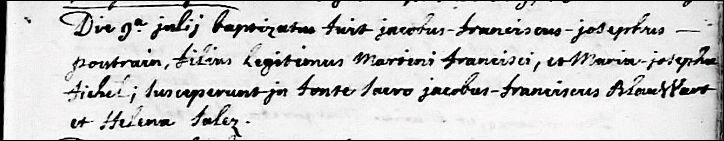 Die 9a julij baptizatus fuit jacobus-franciscus-josephus —
poutrain, filius legitimus Martini francisci, et Maria-josepha
fichel; susceperunt in fonte sacro jacobus-franciscus BlauWart
et Helena Salez.